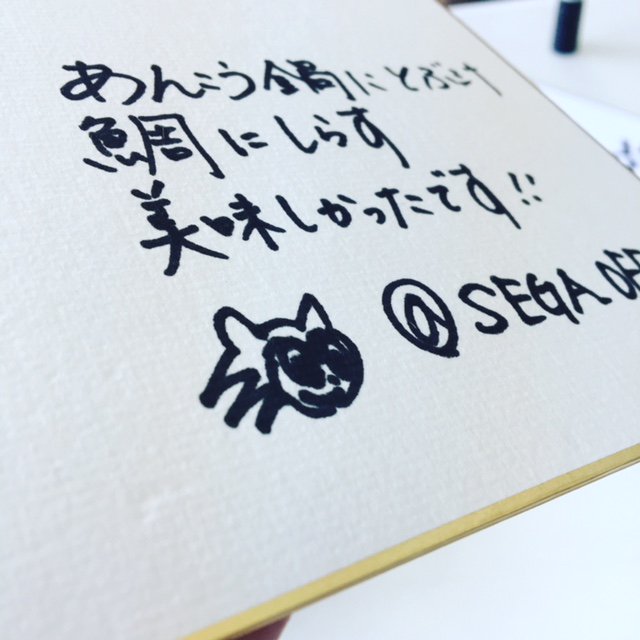 あんこう鍋にどぶ汁
鯛にしらす
美味しかったです!!
@SEGA OFF